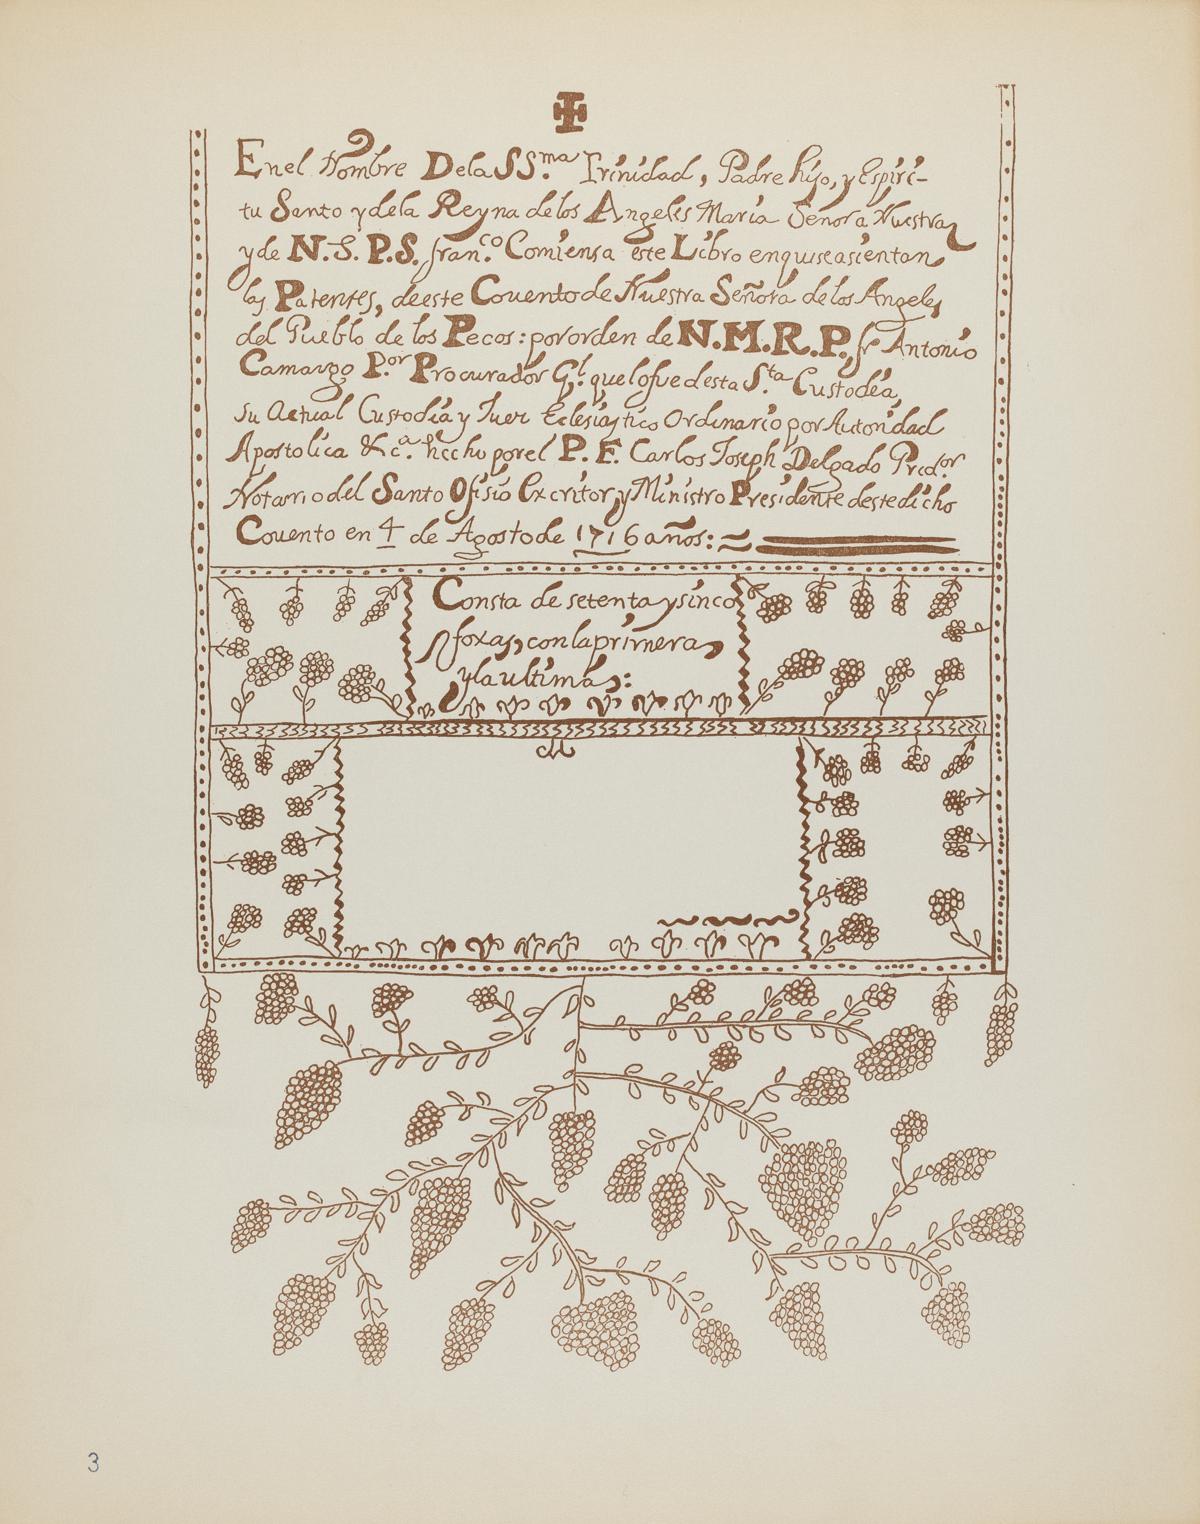 En el Nombre De la SS.ma Trinidad, Padre hijo, y Espiri-
tu Santo y dela Reyna delos Angeles Maria Señora Nuestra
y de N.S. P.S. fran.co Comiensa este Libro enquiseasientan
las Patentes, deeste Couento de Nuestra Señora de los Angeles
del Pueblo de los Pecos: pororden de N.M.R.P. fr Antonio
Camargo P.or Procurador G.l quelofue desta S.ta Custodia,
su Actual Custodia y Juez Eclesiastico Ordinario por Autoridad
Apostolica &c.a hecho porel P. F. Carlos Joseph Delgado Pred.or
Notario del Santo Ofisio Excritor, y Ministro Presidente destedicho
Couento en 4 de Agosto de 1716 años:
Consta de setenta y sinco
foxas, con laprimera
y la ultima:
3